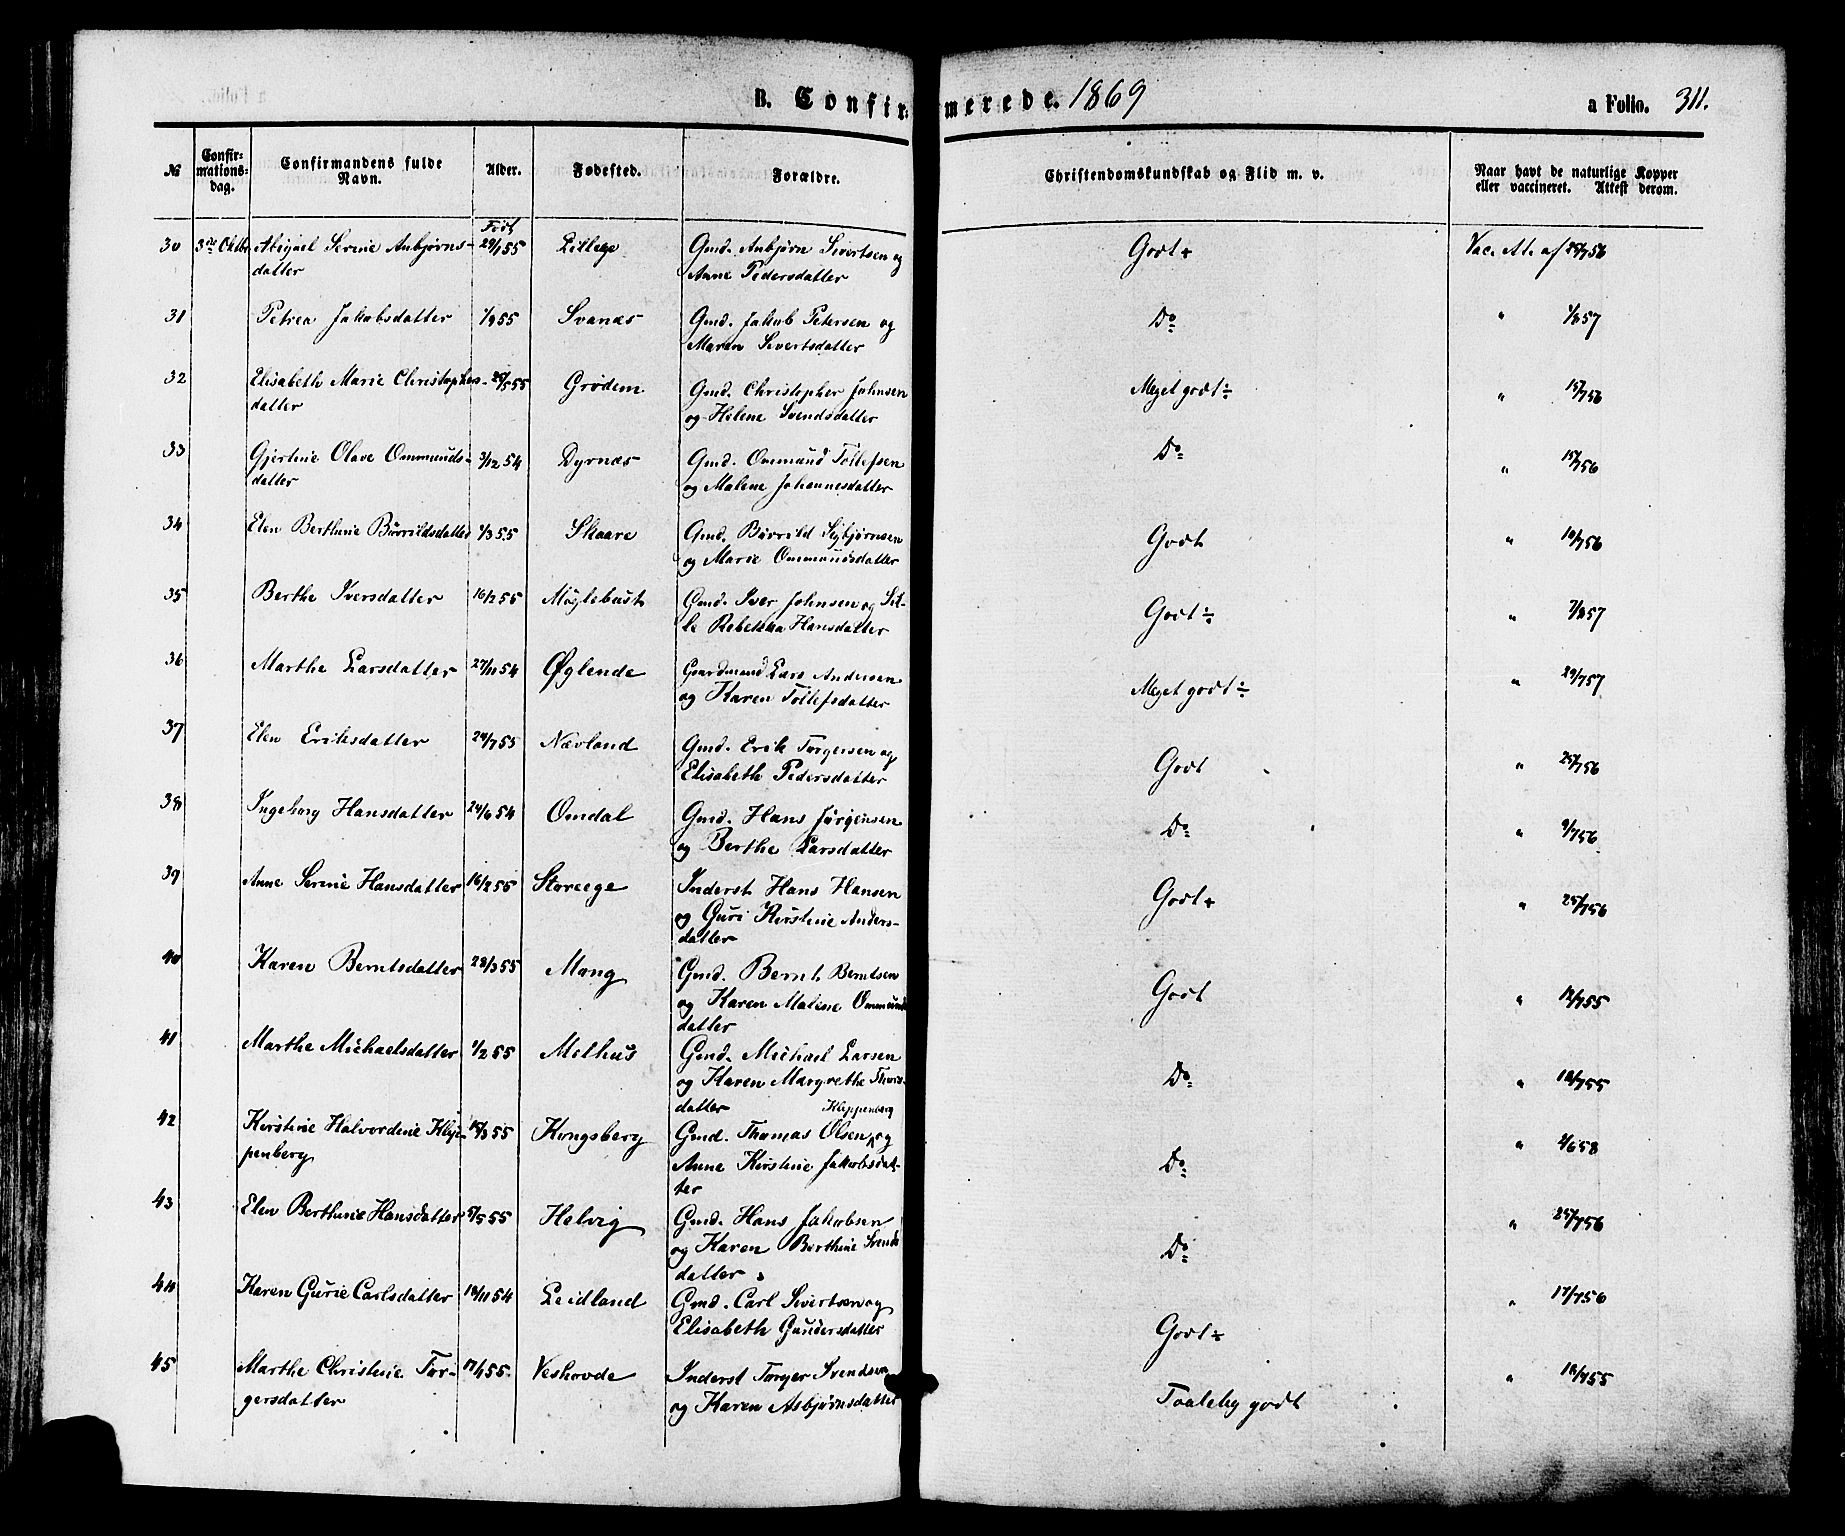 B. Confirmerede. 1869
a Folio. 311.
№ Confir-mations-dag. Confirmandens fulde Navn. Alder. Fødested. Forældre. Christendomskundskab og Flid m. v. Naar havt de naturlige Kopper eller vaccineret. Attest derom.
Født
30 3die Oktbr Abigael Serine Anbjørns- 29/1 55 Litlege Gmd. Anbjørn Sivertsen og Godt+ Vac. At. af 25/7 56
datter Anne Pedersdatter
31 Petrea Jakobsdatter 1/9 55 Svanæs Gmd. Jakob Petersen og Do 1/8 57
Maren Sivertsdatter
32 Elisabeth Marie Christophers- 25/5 55 Grødem Gmd. Christopher Johnsen Meget godt÷ " 15/7 56
datter og Helene Svendsdatter
33 Gjertine Olave Ommunds- 3/12 54 Dyrnæs Gmd. Ommund Tollefsen Do " 15/7 56
datter og Malene Johannesdatter
34 Elen Berthine Bårrildsdatter 1/3 55 Skaare Gmd. Bårrild Sigbjørnsen Godt " 10/7 56
og Marie Ommundsdatter
35 Berthe Iversdatter 16/2 55 Møglebust Gmd. Iver Johnsen og Sil- Godt÷ " 7/8 57
le Rebekka Hansdatter
36 Marthe Larsdatter 27/11 54 Øglende Gaardmand Lars Andersen Meget godt÷ " 29/7 57
og Karen Tollefsdatter
37 Elen Eriksdatter 24/7 55 Nævland Gmd. Erik Torgersen og Godt " 25/7 56
Elisabeth Pedersdatter
38 Ingeborg Hansdatter 24/6 54 Omdal Gmd. Hans Jørgensen Do " 9/7 56
og Berthe Larsdatter
39 Anne Serine Hansdatter 16/2 55 Storeege Inderst Hans Hansen Godt+ " 25/7 56
og Guri Kirstine Anders-
datter
40 Karen Berntsdatter 28/3 55 Mong Gmd. Bernt Berntsen Godt " 12/7 55
og Karen Malene Ommunds
datter
41 Marthe Michaelsdatter 1/2 55 Melhus Gmd. Michael Larsen Do " 18/7 55
og Karen Margrethe
datter Kleppenberg
42 Kirstine Halvordine Klep- 15/3 55 Kongsberg Gmd. Thomas Olsen og Do " 2/6 58
penberg Anne Kirstine Jakobsdat-
ter
43 Elen Berthine Hansdatter 5/5 55 Helvig Gmd. Hans Jakobsen Do " 25/7 56
og Karen Berthine Svends
datter
44 Karen Gurie Carlsdatter 18/11 54 Leidland Gmd. Carl Sivertsen og Godt÷ " 17/7 56
Elisabeth Gundersdatter
45 Marthe Christine Tor- 17/1 55. Veshovde Inderst Torger Svendsen Taaleleg godt " 18/7 55
gersdatter og Karen Asbjørnsdatter